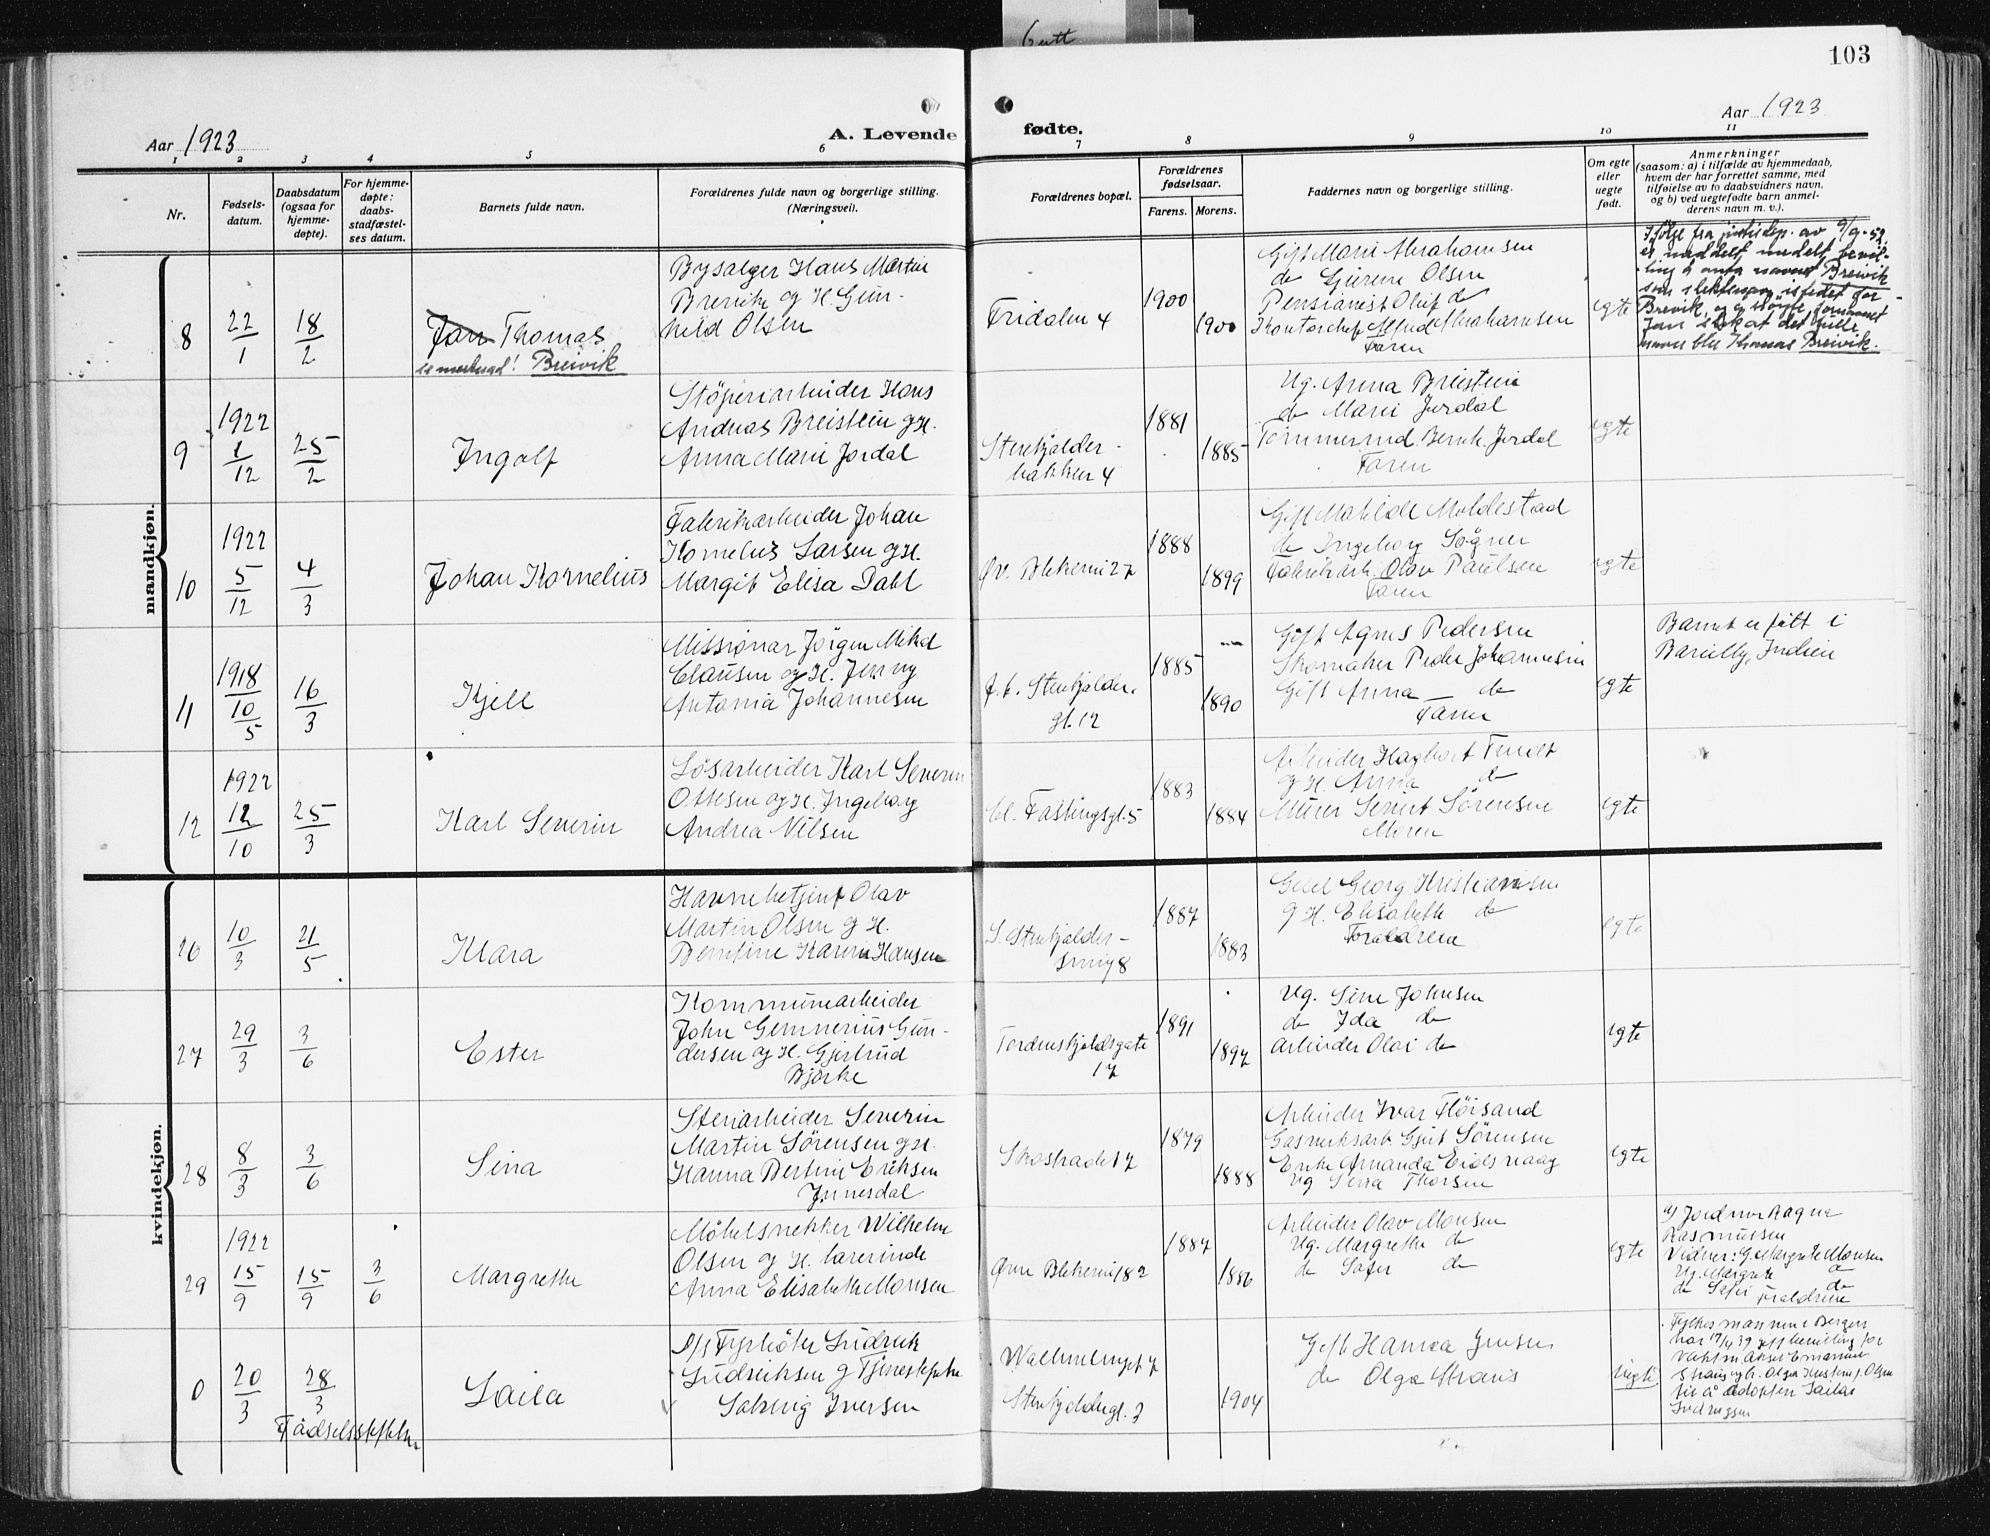 Gutt
103
Aar 1923
A. Levende fødte.
Aar 1923
1 2 3 4 5 6 7 8 9 10 11
Nr.
Fødsels-
datum.
Daabsdatum
(ogsaa for
hjemme-
døpte).
For hjemme-
døpte:
daabs-
stadfæstel-
ses datum.
Barnets fulde navn.
Forældrenes fulde navn og borgerlige stilling.
(Næringsvei).
Forældrenes bopæl.
Forældrenes
fødselsaar.
Farens. Morens.
Faddernes navn og borgerlige stilling.
Om egte
eller
uegte
født.
Anmerkninger
(saasom: a) i tilfælde av hjemmedaab,
hvem der har forrettet samme, med
tilføielse av to daabsvidners navn,
og b) ved uegtefødte barn anmel-
derens navn m. v.).
mandkjøn.
8
22/1
18/2
Jan Thomas
se merknad! Breivik
Bysælger Hans Martin
Brevik og H. Gun-
hild Olsen
Fridalen 4
1900
1900
Gift Marie Abrahamsen
do Gurine Olsen
Pensionist Oluf do
Kontorchef Alfred Abrahamsen
Faren
egte
Ifølge fra justisdep. av 9/9-52
er meddelt bevil-
ling å anta navnet Breivik
som slektsnavn istedet for
Brevik, og å sløyfe fornavnet
Jan slik at det fulle
navn blir Thomas Breivik.
9
1922
1/12
25/2
Ingolf
Støperiarbeider Hans
Andreas Breistein og H.
Anna Marie Jordal
Stenkjelder-
bakken 4
1881
1885
Ug. Anna Breistein
do Marie Jordal
Tømmermd. Bernh. Jordal
Faren
egte
10
1922
5/12
4/3
Johan Kornelius
Fabrikarbeider Johan
Kornelius Larsen og H.
Margit Elisa Dahl
Øv. Blekevei 27
1888
1899
Gift Matilde Moldestad
do Ingeborg Søgnen
Fabrikarb. Olav Paulsen
Faren
egte
11
1918
10/5
16/3
Kjell
Missionær Jørgen Mikal
Clausen og H. Jenny
Antonia Johannesen
f. t. Stenkjelder-
gt. 12
1885
1890
Gift Agnes Pedersen
Skomaker Peder Johannesen
Gift Anna do
Faren
egte
Barnet er født i
Bareilly, Indien
12
1922
12/10
25/3
Karl Severin
Løsarbeider Karl Severin
Ottesen og H. Ingeborg
Andrea Nilsen
Cl. Fastingsgt. 5
1883
1884
Arbeider Hagbart
og H. Anna do
Murer Sørensen
Moren
egte
kvindekjøn.
26
10/3
21/5
Klara
Havnebetjent Olav
Martin Olsen og H.
Berntine Karina Hansen
S. Stenkjelder-
smug 8
1887
1883
Georg Kristiansen
og H. Elisabeth do
Forældrene
egte
27
29/3
3/6
Ester
Kommunearbeider
John Gemnerius Gun-
dersen og H. Gjertrud
Bjørke
Tordenskjoldsgate
17
1891
1897
Ug. Sine Johnsen
do Ida do
Arbeider Olai do
egte
28
8/3
3/6
Sina
Stenarbeider Severin
Martin Sørensen og H.
Hanna Bertine Eriksen
Innesdal
Skostrædet 7
1879
1888
Arbeider Ivar Fløisand
Gasverksarb Gjert Sørensen
Enke Amanda Eidsvaag
Ug Sena Thorsen
egte
29
1922
15/9
15/9
3/6
Margrethe
Møbelsnekker Wilhelm
Olsen og H. lærerinde
Anna Elisabeth Monsen
Øvre Blekevei 182
1887
1886
Arbeider Olav Monsen
Ug. Margrethe do
do Sofie do
egte
a) Jordmor Ragna
Rasmussen
Vidner: G. Margrete Monsen
Ug. Margrete do
do Sofie do
Forældrene
0
20/3
28/3
Fødselsstiftelsen
Laila
D/S Fyrbøter Ludvik
Ludviksen og Tjenestepike
Solveig Iversen
Stenkjeldergt. 3
1904
Gift Hanna Jensen
do Olga Straus
Uegte
Fylkesmannen i Bergen
har 17/4 39 gitt bevilling for
vaktm. Aksel Emanuel
Straus og h. Olga Kristine f. Olsen
til å adoptere Laila